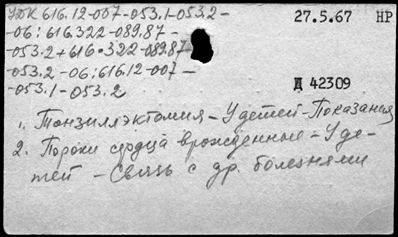 УДК 616.12-007-053.1-053.2-
27.5.67 НР
-06:616.322-089.87-
-053.2+616.322-089.87-
-053.2-06:616.12-007-
-053.1-053.2
Д 42309
1. Тонзиллэктомия - У детей - Показания
2. Пороки сердца врожденные - У де-
тей - Связь с др. болезнями